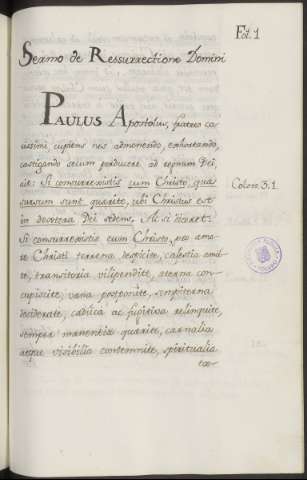 Fol. 1
Sermo de Ressurrectione Domini
PAULUS Apostolus, fratres ca-
rissimi, cupiens nos admonendo, exhortando,
castigando secum perducere ad regnum Dei,
ait: Si consurrexistis cum Christo, quae
sursum sunt quaerite, ubi Christus est
in dextera Dei sedens. Ac si diceret:
Si consurrexistis cum Christo, pro amo-
re Christi terrena despicite, caelestia ama-
te, transitoria vilipendite, aeterna con-
cupiscite, vana postponite, sempiterna
desiderate, caduca ac fugitiva relinquite,
semper manentia quaerite, carnalia
atque visibilia contemnite, spiritualia
Coloss. 3.1.